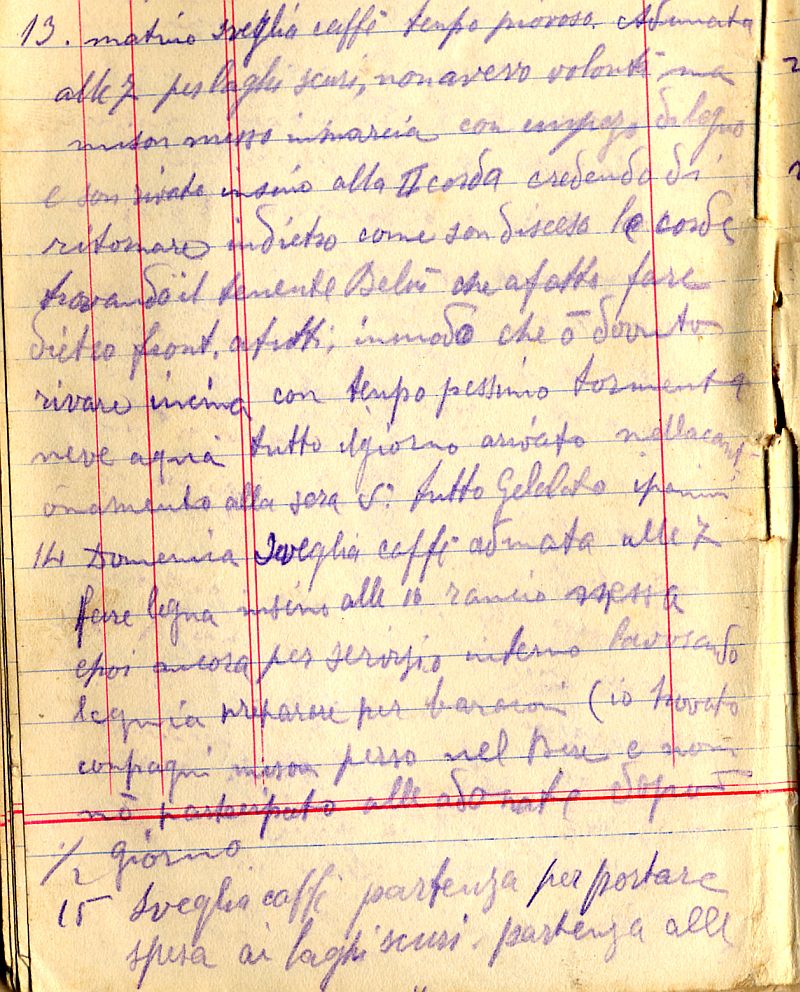 13. matino sveglia caffè tempo piovoso. Adunata
alle 7 per laghi scuri, non avevo volontà ma
mison messo in marcia con un pezo di legno
e son rivato insino alla II corda credendo di
ritornare indietro come son disceso le corde
trovando il tenente che a fatto fare
dietro front. a tutti, in modo che ò dovuto
rivare incima con tenpo pessimo tormenta
neve aqua tutto il giorno arivato nellacant-
onamento alla sera tutto Gelelato ipanni
14 Domenica Sveglia caffè adunata alle 7
fare legna insino alle 10 rancio spessa
epoi ancora per servizio interno lavorando
preparare per baraconi (io trovato
conpagni mison perso nel Bere e non
nò partecipato alle adonate dopo
1/2 giorno
15 sveglia caffè partenza per portare
spesa ai laghi scuri. partenza alle